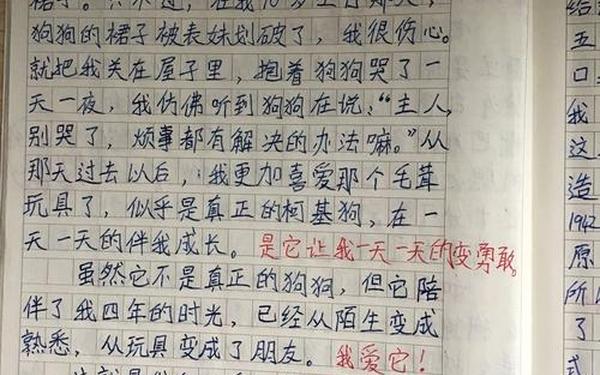 裙子。只不过，在我10岁生日那天，
狗狗的裙子被表妹划破了，我很伤心。
就把我关在屋子里，抱着狗狗哭了一
天一夜，我仿佛听到狗狗在说：“主人，
别哭了，烦事都有解决的办法嘛。”从
那天过去以后，我更加喜爱那个毛茸
玩具了，似乎是真正的柯基狗，在一
天一天的伴我成长。是它让我一天一天的变勇敢。
虽然它不是真正的狗狗，但它陪
伴了我四年的时光，已经从陌生变成
熟悉，从玩具变成了朋友。我爱它！
给
五
口
我
这
造
1942
原
所
了
式